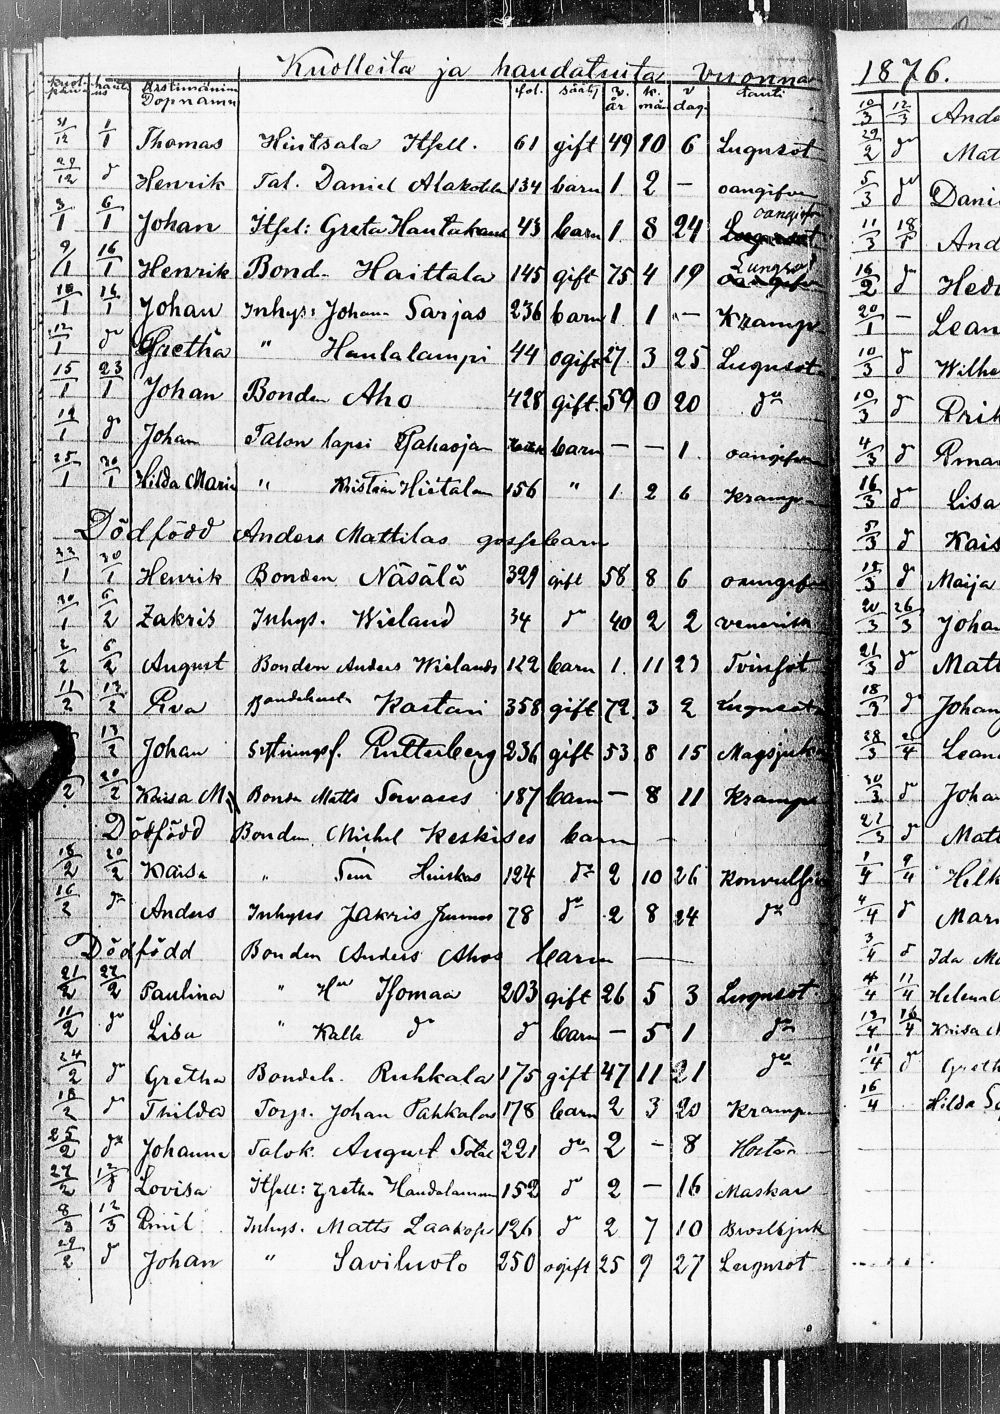 Kuolleita ja haudatuita vuonna 1876.
Ristimänim Dopnamn fol. sääty v. år k. mån v dag. tauti
31/12 1/1 Thomas Hintsala Itsell. 61 gift 49 10 6 Lugnsot
29/12 do Henrik Tal. Daniel 134 barn 1 2 — oangifven
3/1 6/1 Johan Itsel: Greta Hautakan 43 barn 1 8 24 oangifven
9/1 16/1 Henrik Bond. Haittala 145 gift 75 4 19 Lungsot
10/1 16/1 Johan Inhys: Johan Sarjas 236 barn 1 1 — Kramp
12/1 do Gretha " Hautalampi 44 ogift 27 3 25 Lugnsot
15/1 23/1 Johan Bonden Aho 428 gift 59 0 20 do
19/1 do Johan Talon lapsi barn — — 1 oangifven
25/1 30/1 Hilda Maria " Kristian Hietala 156 " 1 2 6 Kramp
Dödfödd Anders Mattilas gossebarn
23/1 30/1 Henrik Bonden Näsälä 329 gift 58 8 6 oangifven
30/1 6/2 Zakris Inhys. Wieland 34 do 40 2 2 venerisk
2/2 6/2 August Bonden Anders Wielands 122 barn 1 11 23 Tvinsot
11/2 13/2 Eva Kastari 358 gift 72 3 2 Lugnsot
13/2 Johan Rutterberg 236 gift 53 8 15 Magsjuk
/2 20/2 Kaisa M. Bonden Matts 187 barn — 8 11 Kramp
Dödfödd Bonden Michel Keskises barn —
18/2 20/2 Kaisa " 124 do 2 10 26 Konvulsion
16/2 do Anders Inhyses 78 do 2 8 24 do
Dödfödd Bonden Anders Ahos barn —
21/2 27/2 Paulina " Hu Isomaa 203 gift 26 5 3 Lugnsot
11/2 do Lisa " Kalle do do barn — 5 1 do
24/2 do Gretha Bondeh. Ruhkala 175 gift 47 11 21 do
18/2 do Thilda Torp. Johan Pahkalas 178 barn 2 3 20 Kramp
25/2 do Johanna Talok. August 221 do 2 — 8 Hosta
27/2 12/3 Lovisa Itsell: Gretha 152 do 2 — 16 Maskar
8/3 12/3 Emil Inhys. Matts Laakops 126 do 2 7 10 Brostsjuk
29/2 do Johan " Saviluoto 250 ogift 25 9 27 Lugnsot
10/3 12/3 And
29/2 do Mat
5/3 do Dani
11/3 And
16/2 do Hed
20/1 — Lean
10/3 do Wilhe
10/3 do Erik
4/3 do Eman
16/3 do Lisa
5/3 do Kais
18/3 do Maija
20/3 26/3 Johan
21/3 do Matt
18/3 do Johan
28/3 2/4 Lean
30/3 do Joha
27/3 do Matt
1/4 9/4 Helk
4/4 do Mari
3/4 do Ida Ma
4/4 Helena
13/4 16/4 Kaisa
11/4 do Greth
16/4 Hilda So